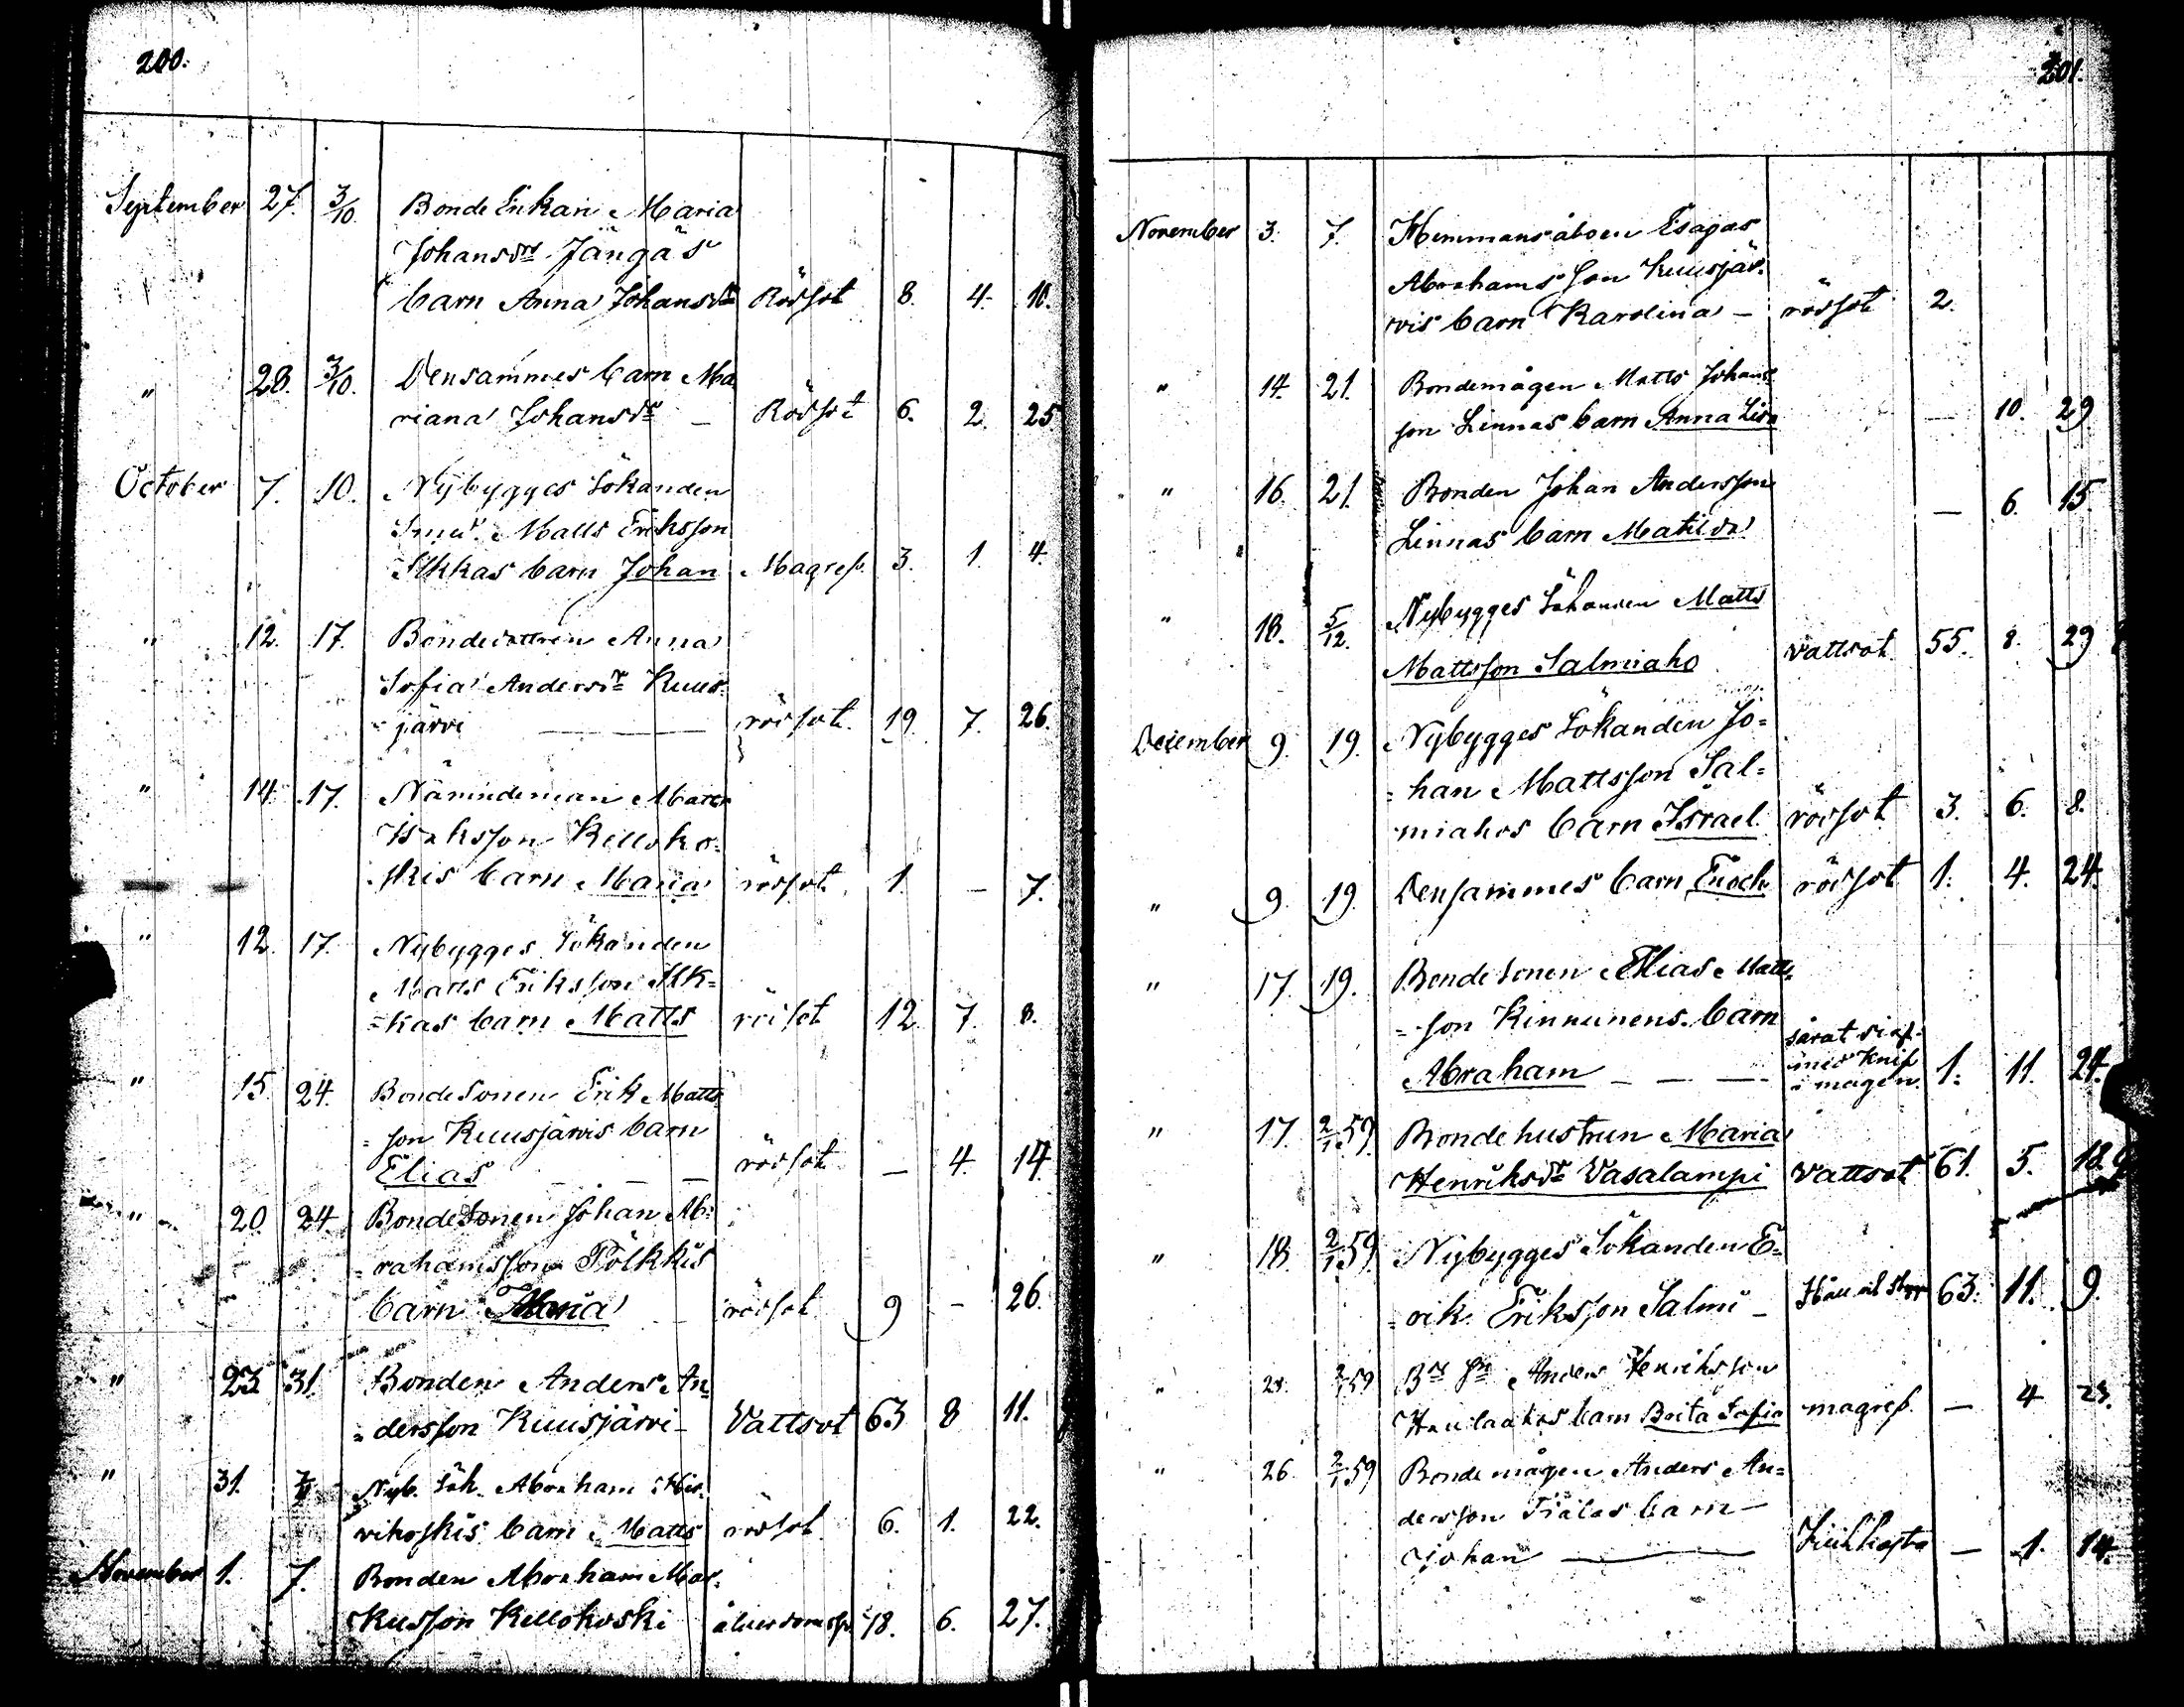 200.
September 27. 3/10. Bonde Enkan Maria
Johansdr Jängäs
barn Anna Johansdr Rödsot 8. 4. 10.
" 28. 3/10. Densammes barn Ma
riana Johansdr — Rödsot 6. 2. 25
October 7. 10. Nybygges Sökanden
Matts Eriksson
Ilkkas barn Johan Magref. 3. 1. 4.
" 12. 17. Bondedottren Anna
Sofia Andersdr Kuus-
=järvi — rödsot. 19. 7. 26.
" 14. 17. Nämndeman Matts
Isaksson Kelloko-
skis barn Maria rödsot 1. — 7.
" 12. 17. Nybygges Sökanden
Matts Eriksson Ilk=
=kas barn Matts rödsot 12. 7. 8.
" 15. 24. Bondesonen Erik Matts
=son Kuusjärvis barn
Elias — — rödsot — 4 14.
" 20. 24. Bondesonen Johan Ab=
=rahamsson Pölkkis
barn Maria rödsot 9 — 26.
" 23 31. Bonden Anders An=
=dersson Kuusjärvi — Vattsot 63 8 11.
" 31. Nyb. Sök. Abraham Hir-
vikoskis barn Matts rödsot 6. 1. 22.
November 1. 7. Bonden Abraham Mar-
kusson Kellokoski 78. 6. 27.
201.
November 3. 7. Hemmansåboen Esaias
Abrahamsson Kuusjär-
vis barn Karolina — rödsot 2.
" 14. 21. Bondemågen Matts Johans
son Linnas barn Anna Lisa — 10. 29
" 16. 21. Bonden Johan Andersson
Linnas barn Matilda — 6. 15.
" 18. 5/12. Nybygges Sökanden Matts
Mattsson Salmiaho Vattsot 55. 8. 29
December 9. 19. Nybygges Sökanden Jo=
=han Mattsson Sal=
miahos barn Israel rödsot 3. 6. 8.
" 9. 19. Densammes barn Enoch rödsot 1. 4. 24.
" 17. 19. Bondesonen Elias Matts
=son Kinnunens barn
Abraham — — — sårat sig
med knif
i magen. 1. 11. 24.
" 17. 2/1 59. Bondehustrun Maria
Henriksdr Vasalampi Vattsot 61. 5. 18.
" 18. 2/1 59. Nybygges Sökanden E=
=rik Eriksson Salmi — Håll och Styng 63. 11. 9.
" 2/1 59 Anders Henriksson
barn Brita Sofia magref. — 4 23.
" 26. 2/1 59 Bondemågen Anders An=
dersson barn —
Johan — Kikhosta — 1. 14.